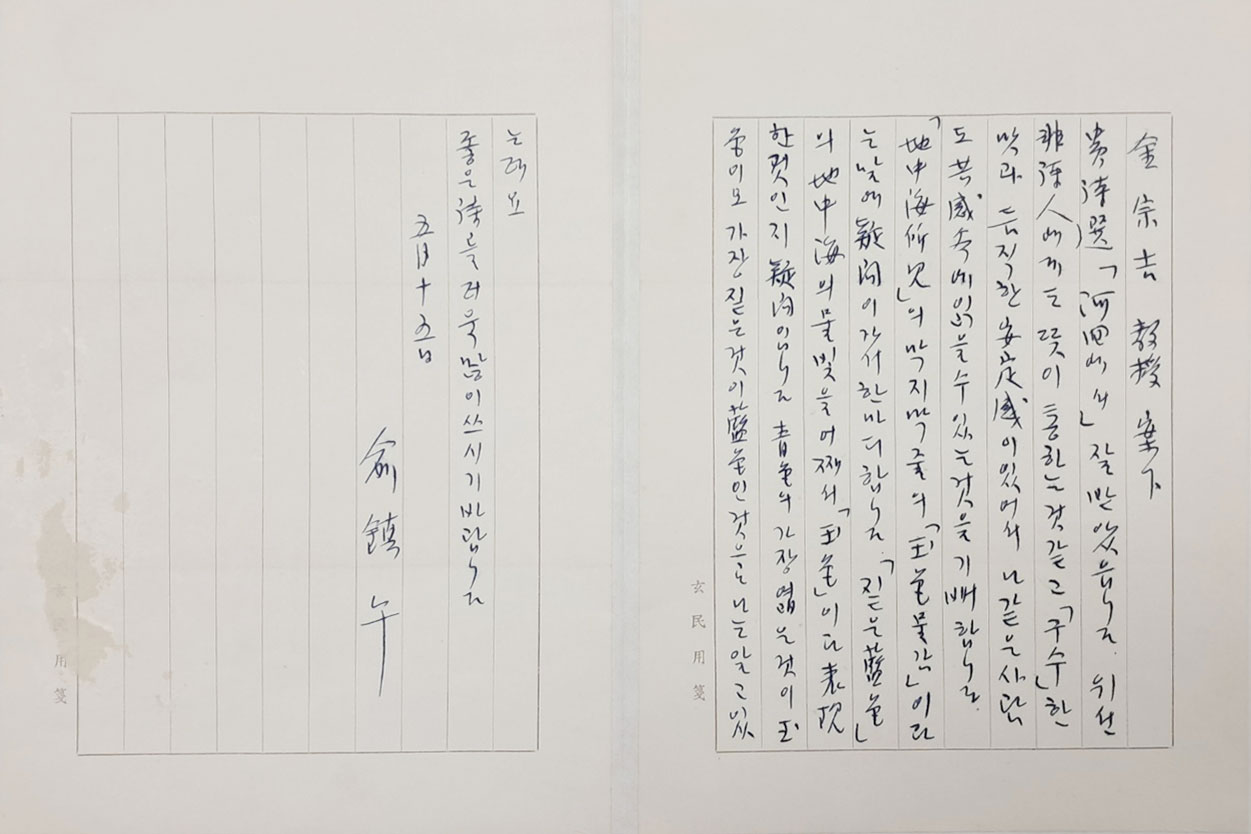 金宗吉 教授 案下
貴詩選「河回에서」 잘 받았읍니다. 위선
非詩人에게도 뜻이 통하는것같고 「구수」한
맛과 듬직한 安定感이있어서 나같은사람
도 共感속에읽을수있는것을기뻐합니다.
「地中海所見」의 막지막줄의 「玉色물감」이라
는말에 疑問이가서한마디합니다. 「짙은藍色」
의 地中海의물빛을어째서 「玉色」이라表現
한것인지 疑問입니다 靑色의가장엷은것이玉
色이고 가장짙은것이藍色인것으로나는알고있
는데요
좋은詩를더욱많이쓰시기바랍니다
五月十五日
兪鎭午
玄民用箋
用箋